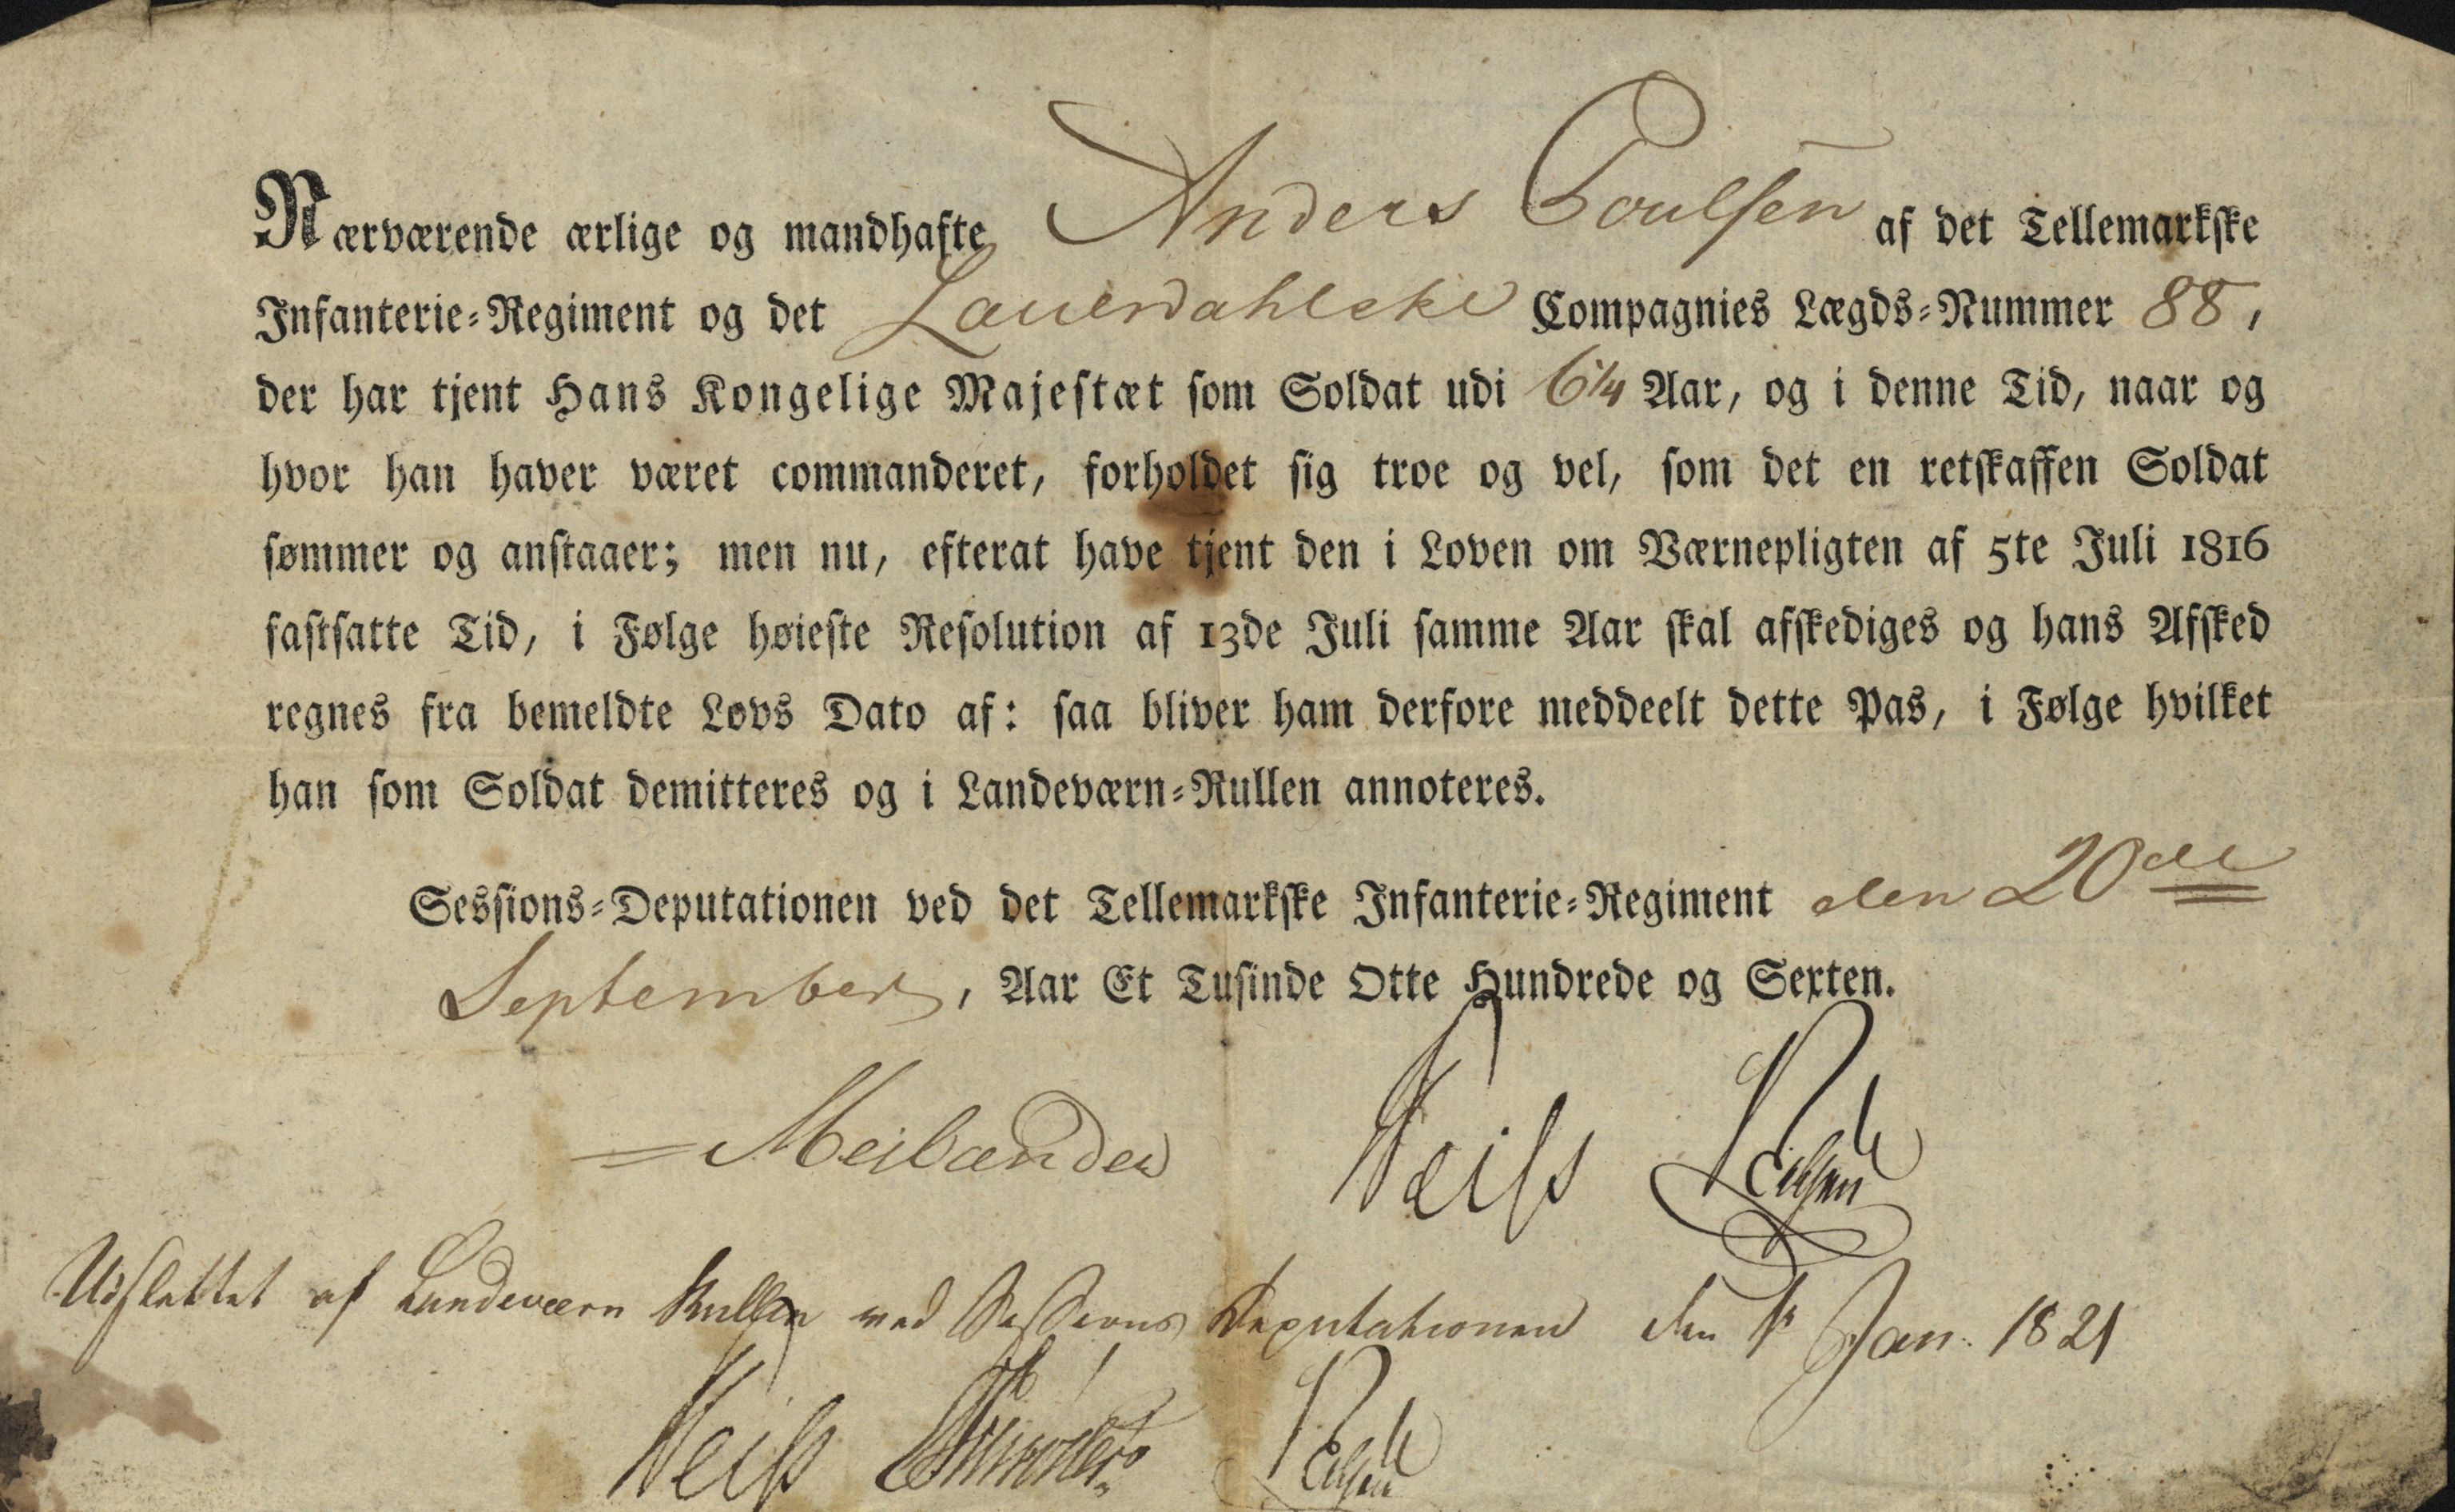 Nærværende ærlige og mandhafte Anders Poulsen af det Tellemarkske
Infanterie-Regiment og det Lauerdahlske Compagnies Lægds-Nummer 88,
der har tjent Hans Kongelige Majestæt som Soldat udi 6 1/4 Aar, og i denne Tid, naar og
hvor han haver været commanderet, forholdet sig troe og vel, som det en retskaffen Soldat
sømmer og anstaaer; men nu, efterat have tjent den i Loven om Værnepligten af 5te Juli 1816
fastsatte Tid, i Følge høieste Resolution af 13de Juli samme Aar skal afskediges og hans Afsked
regnes fra bemeldte Lovs Dato af: saa bliver ham derfore meddeelt dette Pas, i Følge hvilket
han som Soldat demitteres og i Landeværn-Rullen annoteres.
Sessions-Deputationen ved det Tellemarkske Infanterie-Regiment den 20de
September, Aar Et Tusinde Otte Hundrede og Sexten.
Meilænder Weiss
Udslettet af Landeværn Rullen ved Sessions Deputationen den 1te Jan. 1821
Weiss